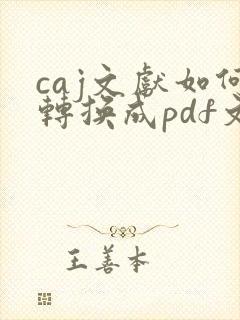 caj文獻如何
轉換成pdf文
王善本